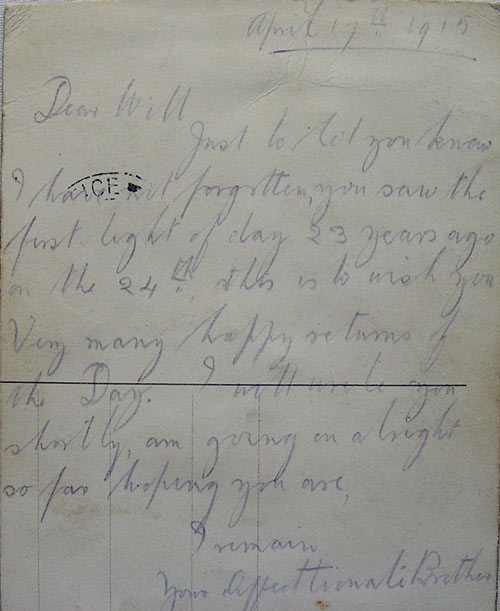 April 17th 1915
Dear Will
Just to let you know
I have not forgotten, you saw the
ICE
first light of day 23 years ago
on the 24th, & this is to wish you
Very many happy returns of
the Day. I will write you
shortly, am going on alright
so far hoping you are,
I remain
Your Affectionate Brother